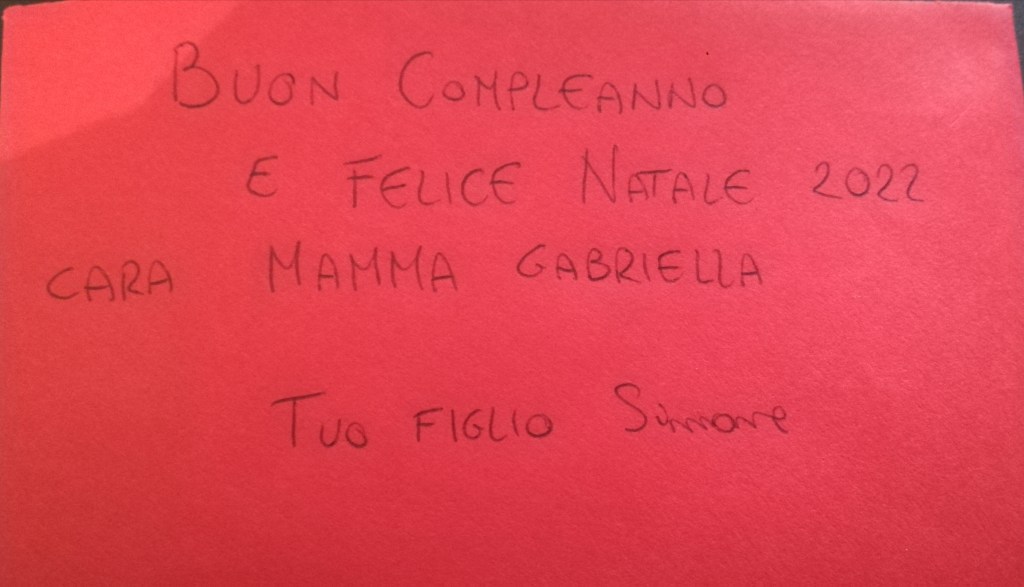 BUON COMPLEANNO
E FELICE NATALE 2022
CARA MAMMA GABRIELLA
TUO FIGLIO Simone